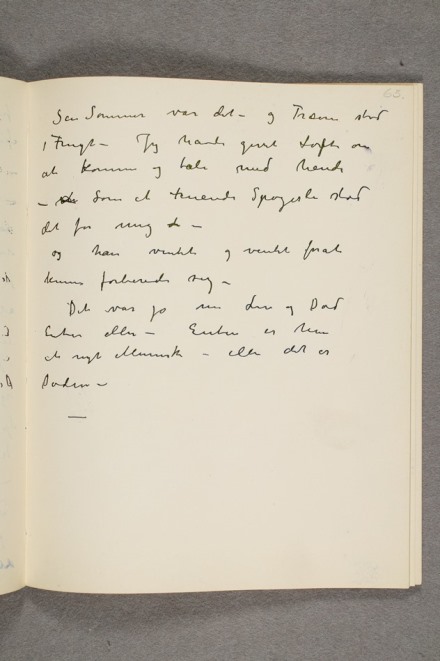 63.
Sen Sommer var det – og Træerne stod
i Frugt – Jeg havde givet Løfte om
at komme og tale med hende
– Som et truende Spøgelse stod
det for mig –
og han ventet og ventet forat
kunne forberede sig –
Det var jo om Liv og Død
Enten eller – Enten er hun
et nyt Menneske – eller det er
Døden –